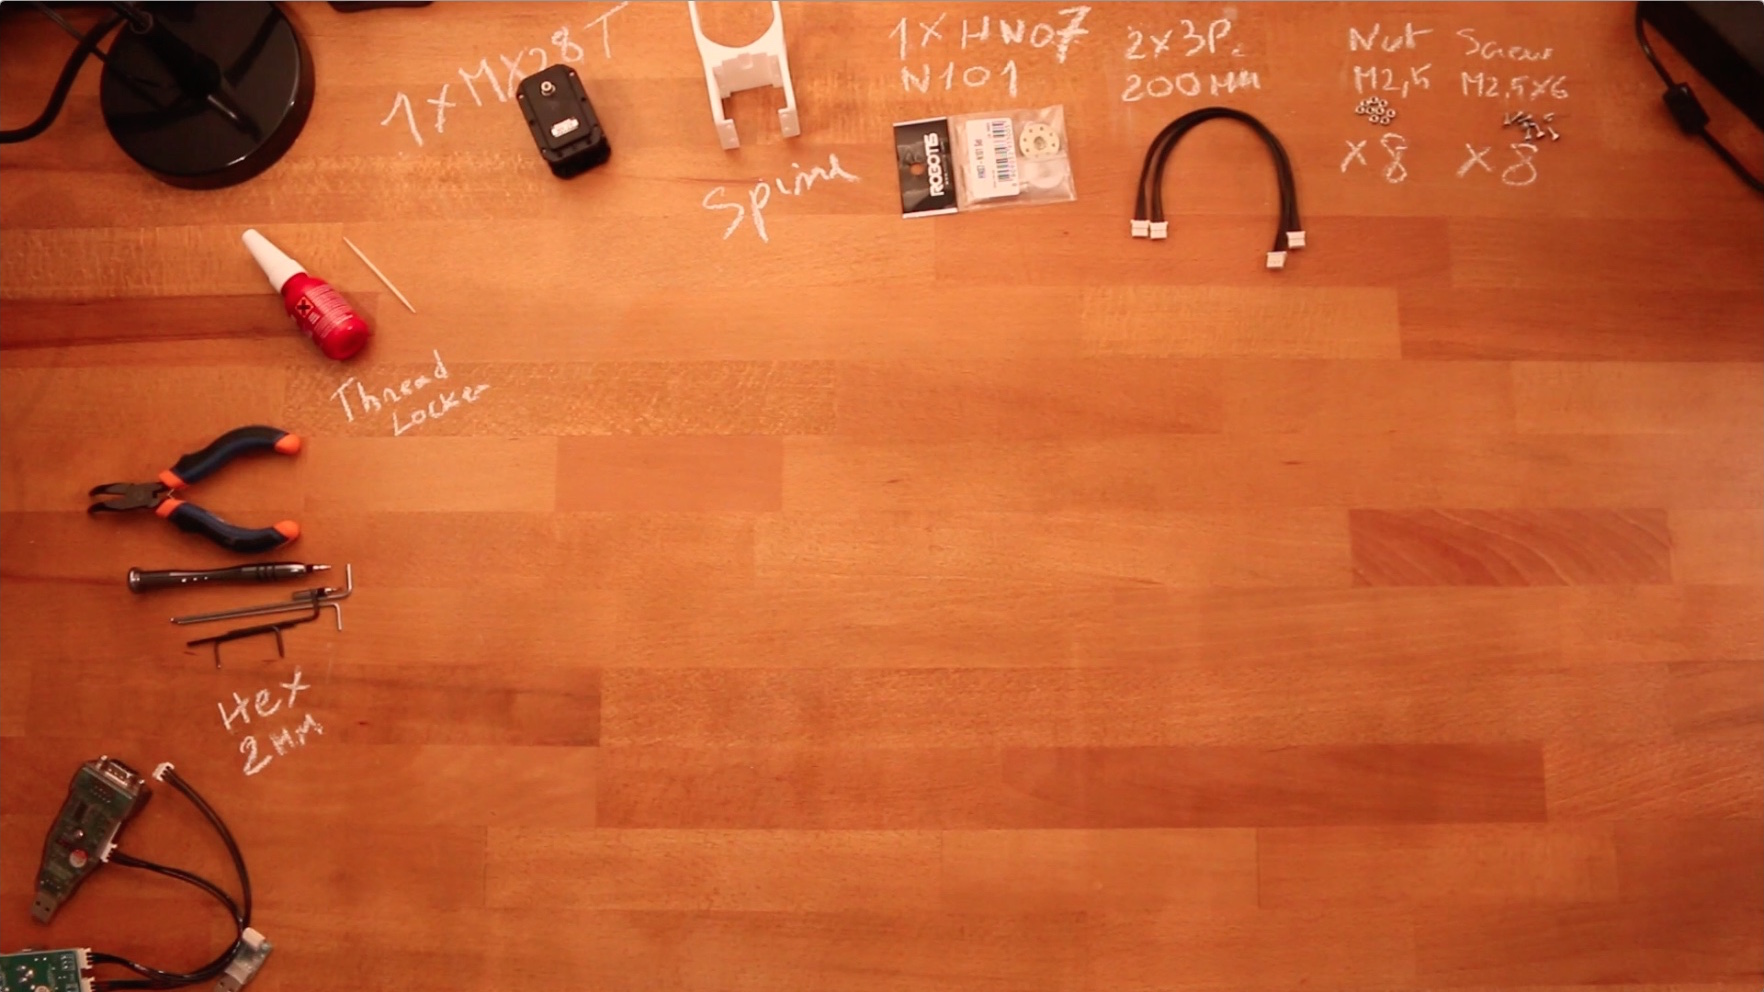 1xMX28T
Spine
1X HN07
N101
2x3P
200mm
Nut
M2,5
x8
Screw
M2,5x6
x8
ROBOTIS
Thread
Locker
Hex
2mm